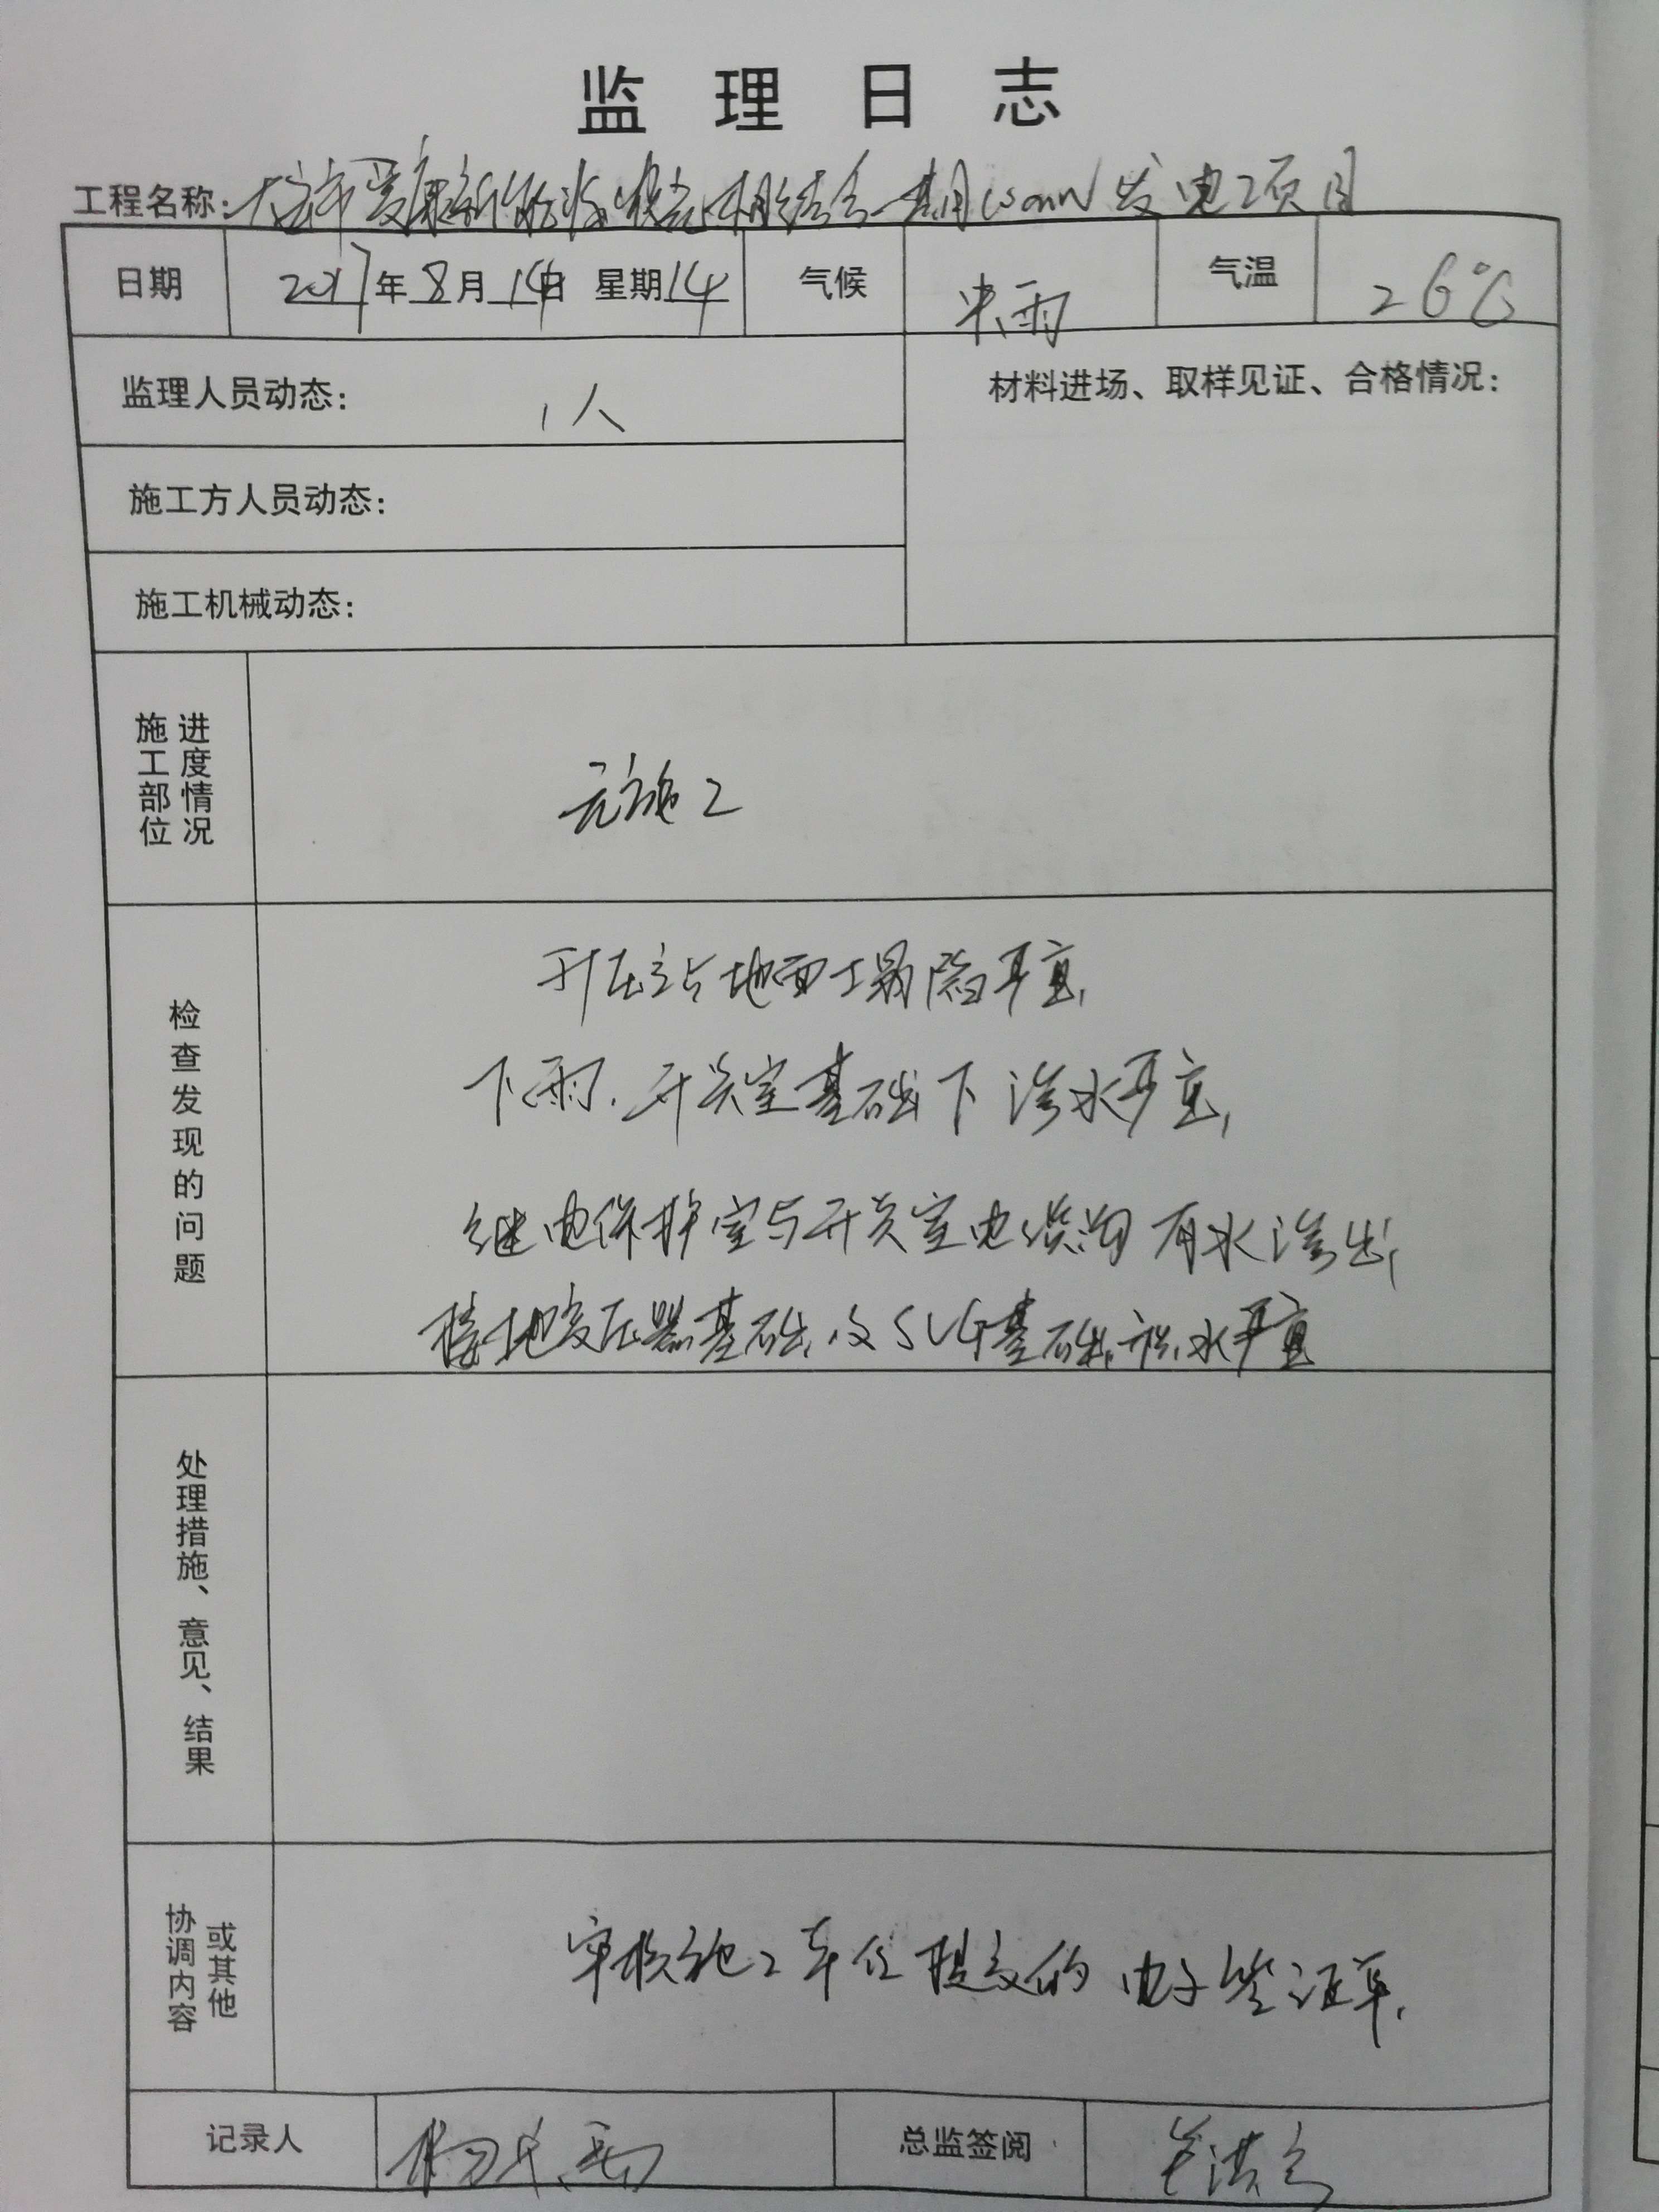 监理日志
工程名称: 市爱康新能源 光 相结合一期 发电项目
日期 2017年8月14日 星期14 气候 雨 气温 26℃
监理人员动态: 1人 材料进场、取样见证、合格情况:
施工方人员动态:
施工机械动态:
施工部位 进度情况 无施工
检查发现的问题
升压站地面土塌陷严重,
下雨.开关室基础下渗水严重,
继电保护室与开关室电缆沟有水渗出,
接地变压器基础,及SVG基础,积水严重
处理措施、意见、结果
协调内容 或其他 审核施工单位提交的 电子签证单.
记录人 杨 总监签阅